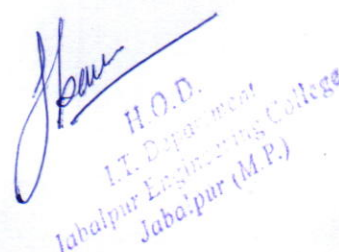 H.O.D.
I.T. Department
Jabalpur Engineering College
Jabalpur (M.P.)